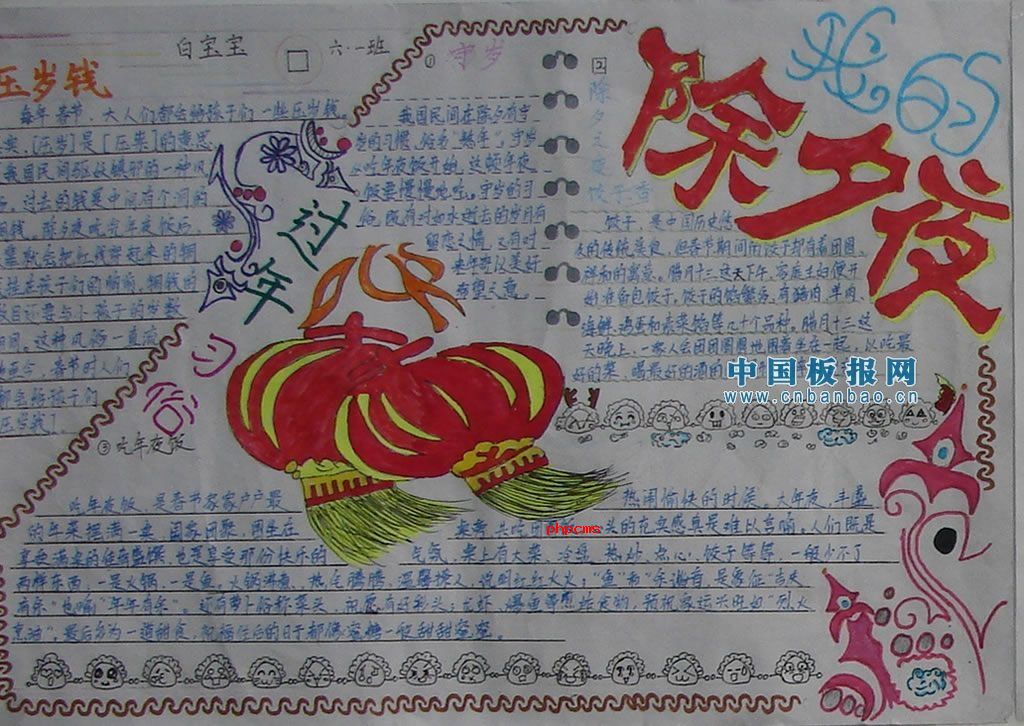 白宝宝
六·一班
我的
除夕夜
压岁钱
每年春节、大人们都会给孩子们一些压岁钱。
[压岁]是[压祟]的意思
我国民间驱妖镇邪的一种风
过去的钱是中间有个洞的
铜钱。除夕夜吃完年夜饭后
就会把红线穿起来的铜
挂在孩子们的胸前,铜钱的
数目必要与小孩子的岁数
相同。这种风俗一直流
春节时人们
都会给孩子们
压岁钱]。
① 守岁
我国民间在除夕有守
岁的习惯,俗名"熬年"。守岁
从吃年夜饭开始,这顿年夜
饭要慢慢地吃。守岁的习
俗,既有对如水逝去的岁月有
留恋之情,又有对
来年寄以美好
希望之意。
过年
习俗
②
除夕之夜
饺子香
饺子,是中国历史悠
久的传统美食,但春节期间的饺子却有着团圆、
祥和的寓意。腊月三十这天下午,家庭主妇便开
始准备包饺子,饺子的馅繁多,有猪肉、羊肉、
海鲜、鸡蛋和素菜馅等几十个品种。腊月三十这
天晚上,一家人会团团圆圆地围着坐在一起,以吃最
好的菜、喝最好的酒
中国板报网
www.cnbanbao.cn
③ 吃年夜饭
吃年夜饭,是春节家家户户最
热闹愉快的时候。大年夜,丰盛
的年菜摆满一桌,阖家团聚,围坐在
桌旁,共吃团
头的充实感真是难以言喻。人们既是
phpcms
享受满桌的佳肴盛馔,也是享受那份快乐的
气氛,桌上有大菜、冷盘、热炒、点心、饺子等等,一般少不了
两样东西,一是火锅,一是鱼。火锅沸煮,热气腾腾,温馨撩人,说明红红火火;"鱼"和"余"谐音,是象征"吉庆
有余"也喻"年年有余"。还有萝卜俗称菜头,祝愿有好彩头;龙虾、爆鱼等煎炸食物,预祝家运兴旺如"烈火
烹油"。最后多为一道甜食,祝福往后的日子都像蜜糖一般甜甜蜜蜜。